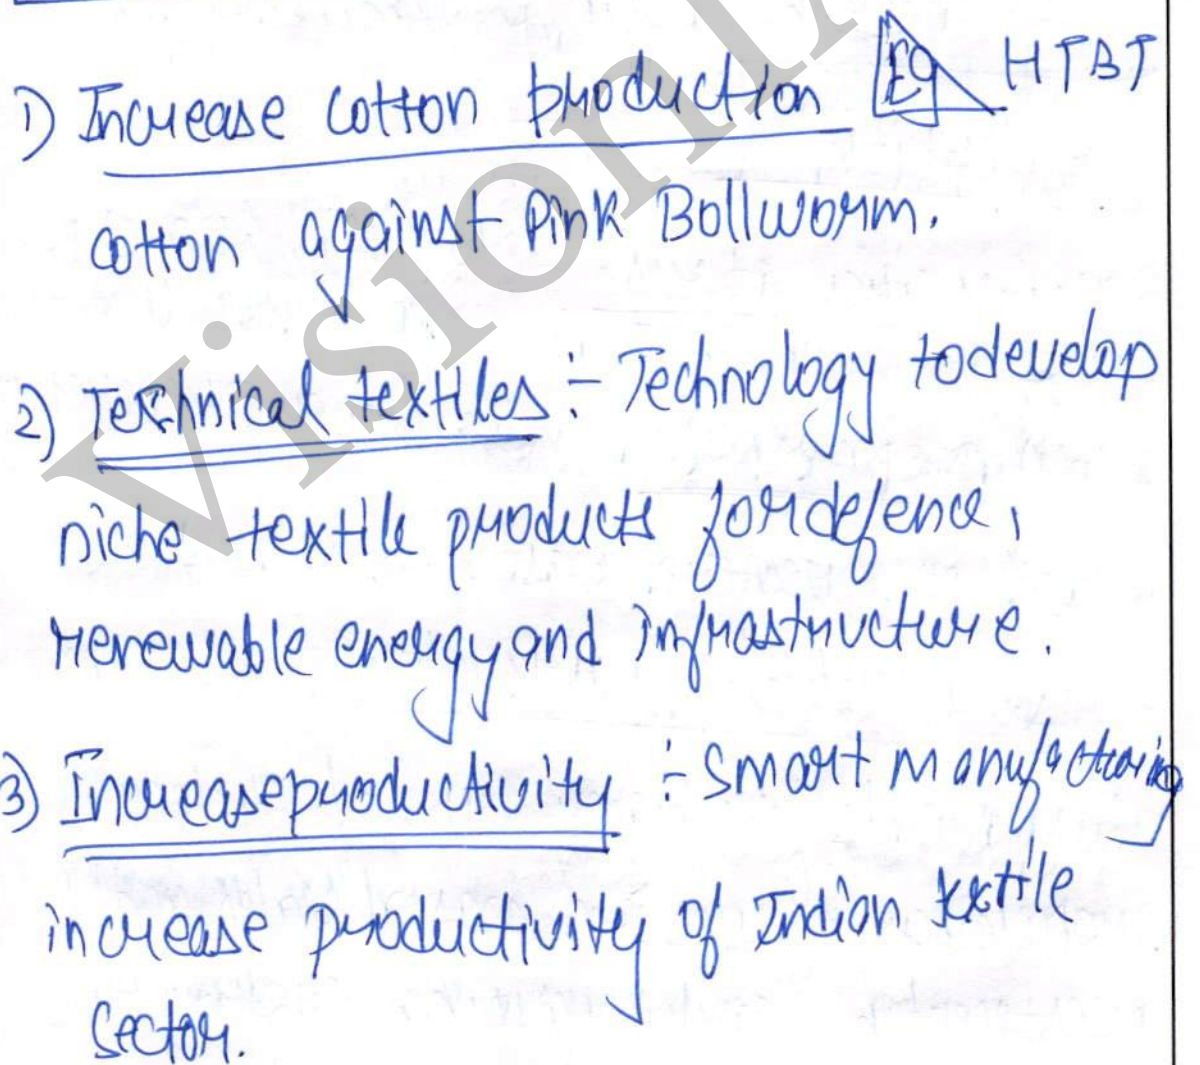 1) Increase cotton production Eg HTBT
cotton against Pink Bollworm.
2) Technical textiles :- Technology to develop
niche textile products for defence,
renewable energy and infrastructure.
3) Increase productivity :- Smart manufacturing
increase productivity of Indian textile
sector.
Vision